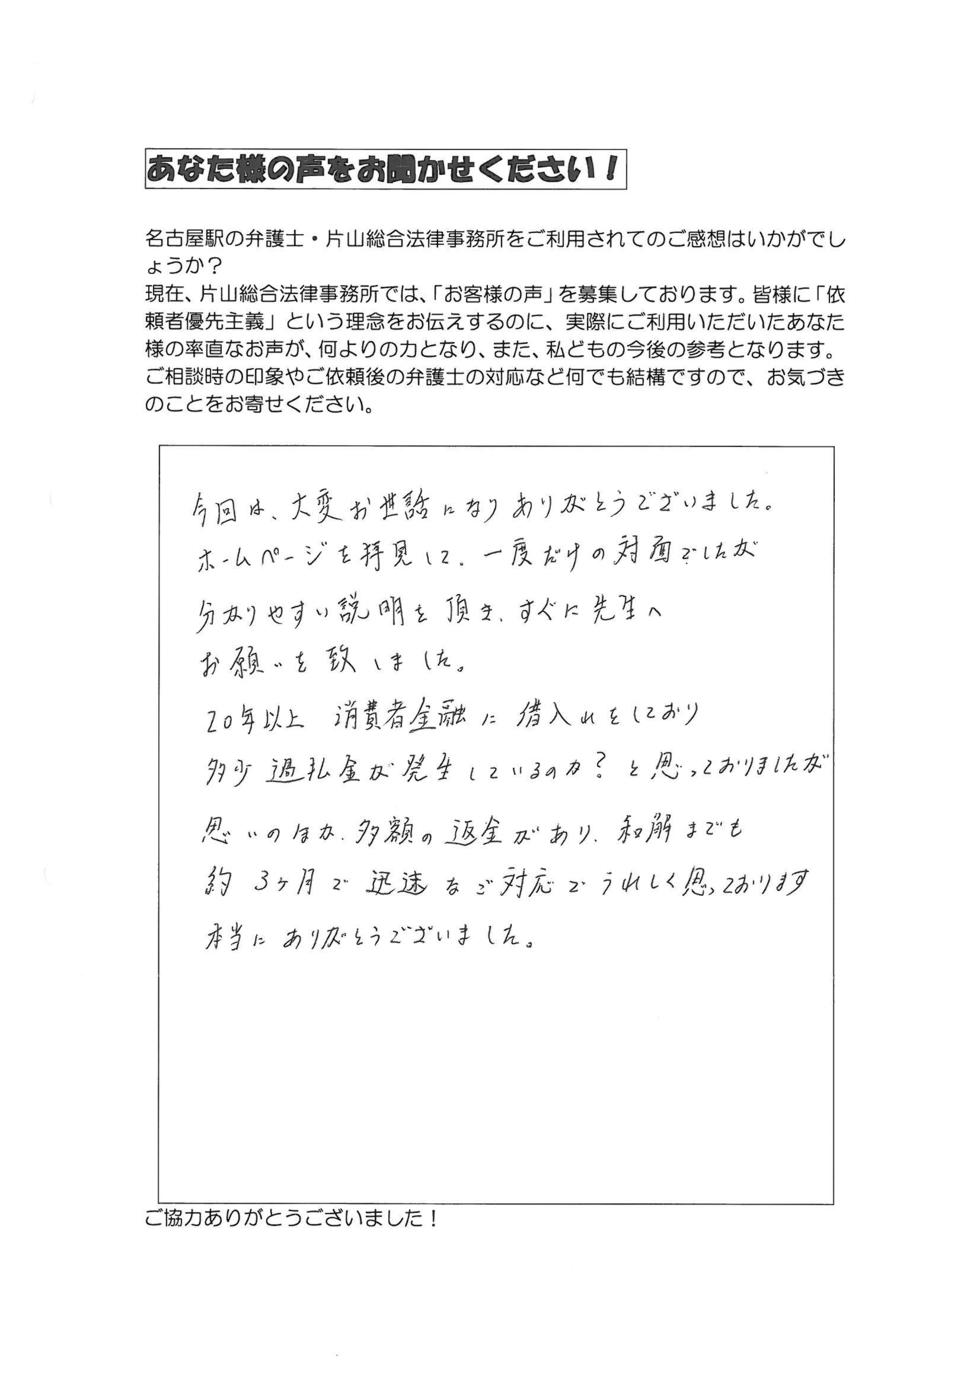 あなた様の声をお聞かせください！
名古屋駅の弁護士・片山総合法律事務所をご利用されてのご感想はいかがでし
ょうか？
現在、片山総合法律事務所では、「お客様の声」を募集しております。皆様に「依
頼者優先主義」という理念をお伝えするのに、実際にご利用いただいたあなた
様の率直なお声が、何よりの力となり、また、私どもの今後の参考となります。
ご相談時の印象やご依頼後の弁護士の対応など何でも結構ですので、お気づき
のことをお寄せください。
今回は、大変お世話になりありがとうございました。
ホームページを拝見して、一度だけの対面でしたが
分かりやすい説明を頂き、すぐに先生へ
お願いを致しました。
20年以上 消費者金融に借入れをしており
多少過払金が発生しているのか？と思っておりましたが
思いのほか、多額の返金があり、和解までも
約3ヶ月で迅速なご対応でうれしく思っております
本当にありがとうございました。
ご協力ありがとうございました！